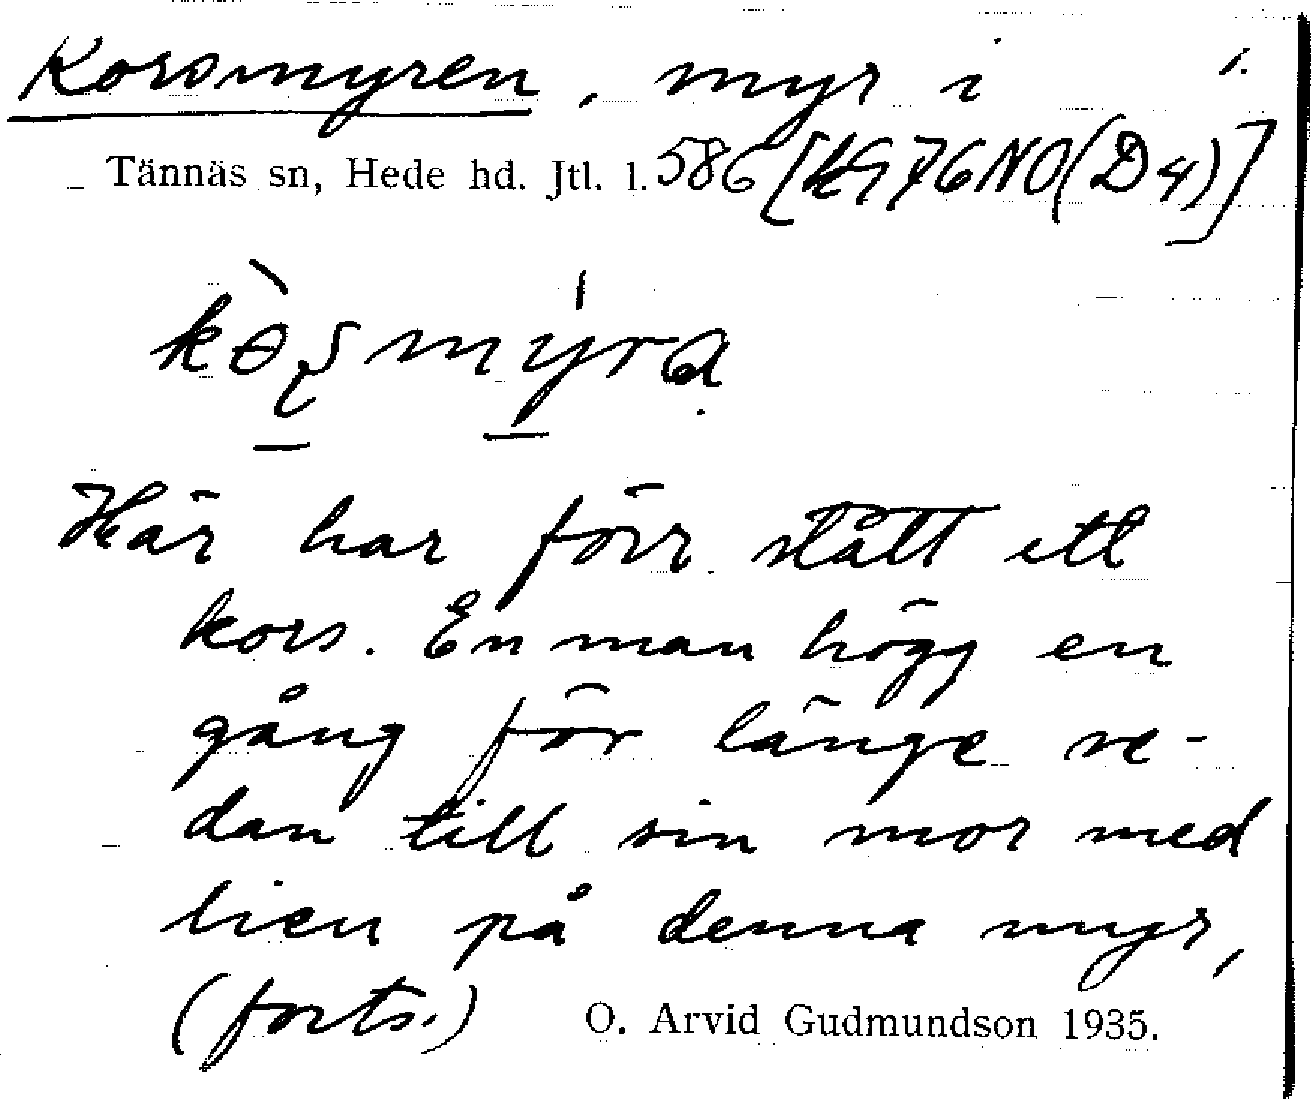 Korsmyren, myr i 1.
Tännäs sn, Hede hd. Jtl. l. 586 [k976NO(D4)]
Här har förr stått ett
kors. En man högg en
gång för länge se-
dan till sin mor med
lien på denna myr,
(forts.) O. Arvid Gudmundson 1935.